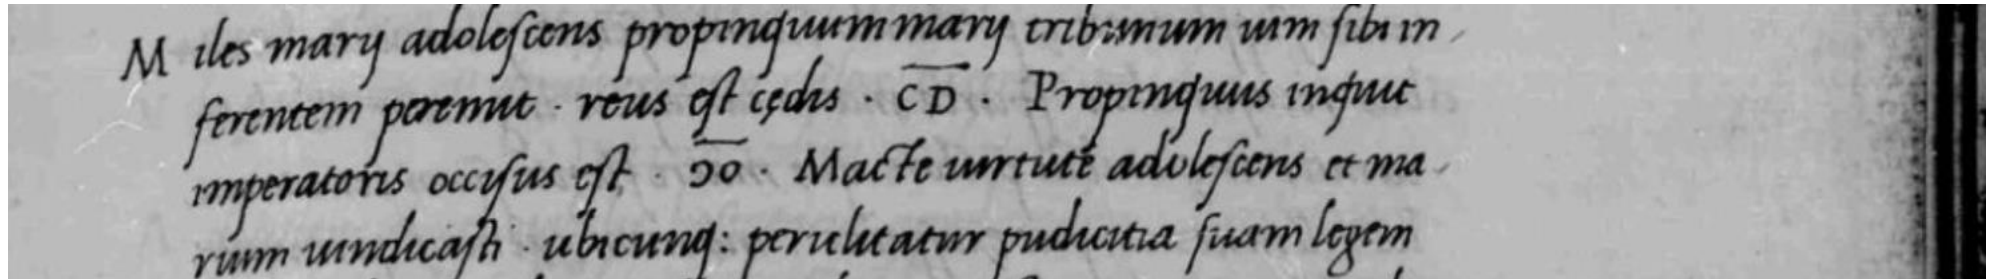 M iles marij adolescens propinquum marij tribunum uim sibi in
ferentem peremit · reus est cędis · C̅D̅ · Propinquus inquit
imperatoris occisus est · ↄo · Macte uirtute adolescens et ma
rium uindicasti · ubicunq: periclitatur pudicitia suam legem